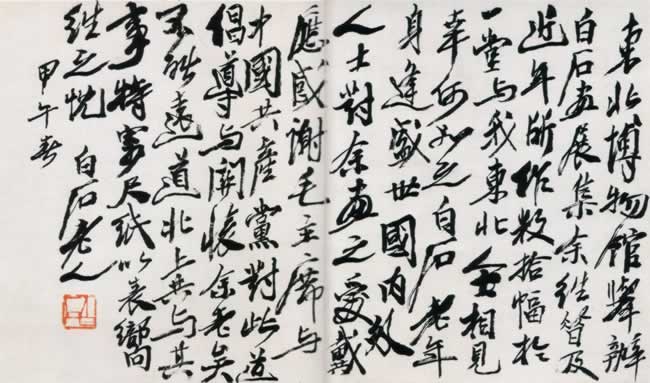 東北博物館舉辦
白石畫展集余往昔及
近年所作數拾幅於
一堂与我東北人士相見
幸何如之白石老年
身逢盛世國内
人士對余畫之愛戴
應感謝毛主席与
中國共產黨對此道
倡導与關懷余老矣
不能遠道北上共与其
事特寄尺紙以表嚮
往之忱 白石老人
甲午春